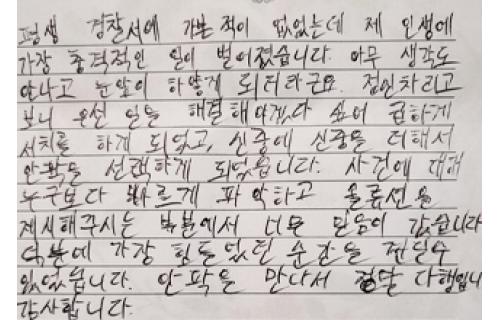 평생 경찰서에 가본 적이 없었는데 제 인생에
가장 충격적인 일이 벌어졌습니다. 아무 생각도
안나고 눈앞이 하얗게 되더라구요. 정신차리고
보니 우선 일을 해결해야겠다 싶어 급하게
서치를 하게 되었고, 신중에 신중을 더해서
안팍을 선택하게 되었습니다. 사건에 대해
누구보다 빠르게 파악하고 솔류션을
제시해주시는 부분에서 너무 믿음이 갔습니다
덕분에 가장 힘들었던 순간을 견딜수
있었습니다. 안팍을 만나서 정말 다행입니
감사합니다.